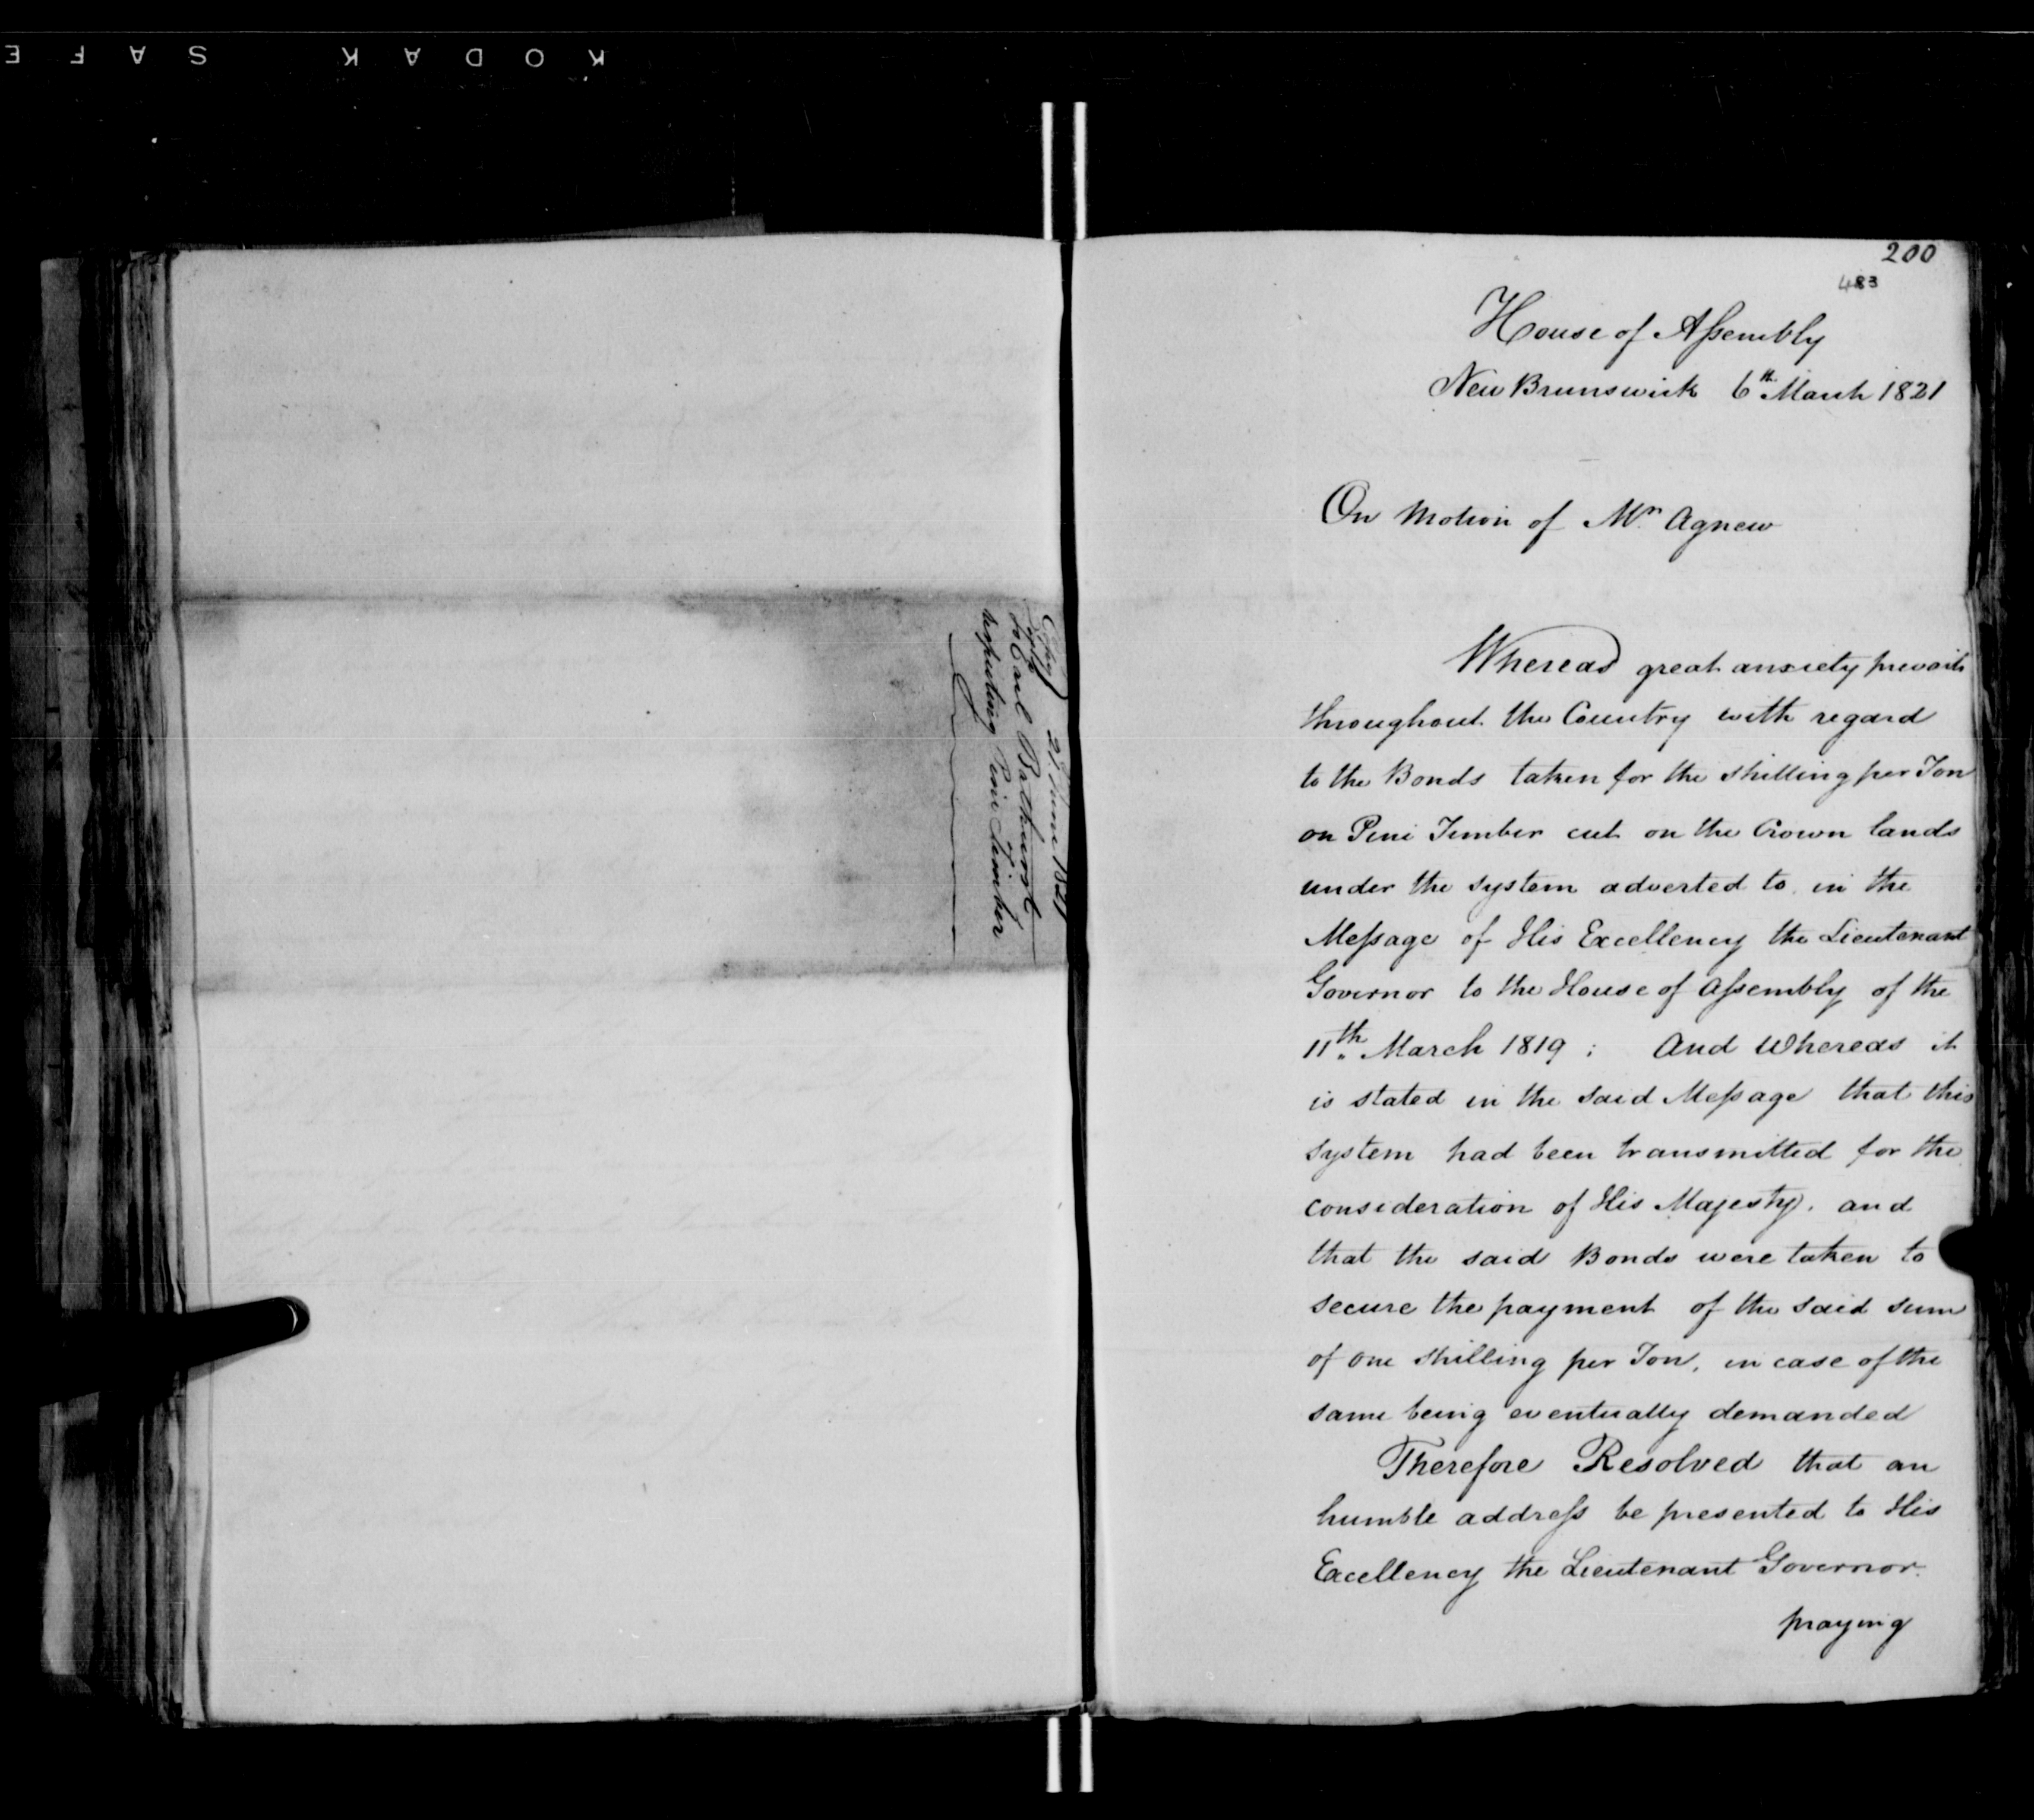 KODAK SAFE
Copy
21 June 1821
to Earl Bathurst
respecting Pine Timber
200
483
House of Assembly
New Brunswick 6th March 1821
On Motion of Mr Agnew
Whereas great anxiety prevails
throughout the Country with regard
to the Bonds taken for the shilling per Ton
on Pine Timber cut on the Crown lands
under the system adverted to in the
Message of His Excellency the Lieutenant
Governor to the House of Assembly of the
11th March 1819; And Whereas it
is stated in the said Message that this
system had been transmitted for the
consideration of His Majesty, and
that the said Bonds were taken to
secure the payment of the said sum
of one shilling per Ton, in case of the
same being eventually demanded
Therefore Resolved that an
humble address be presented to His
Excellency the Lieutenant Governor.
praying